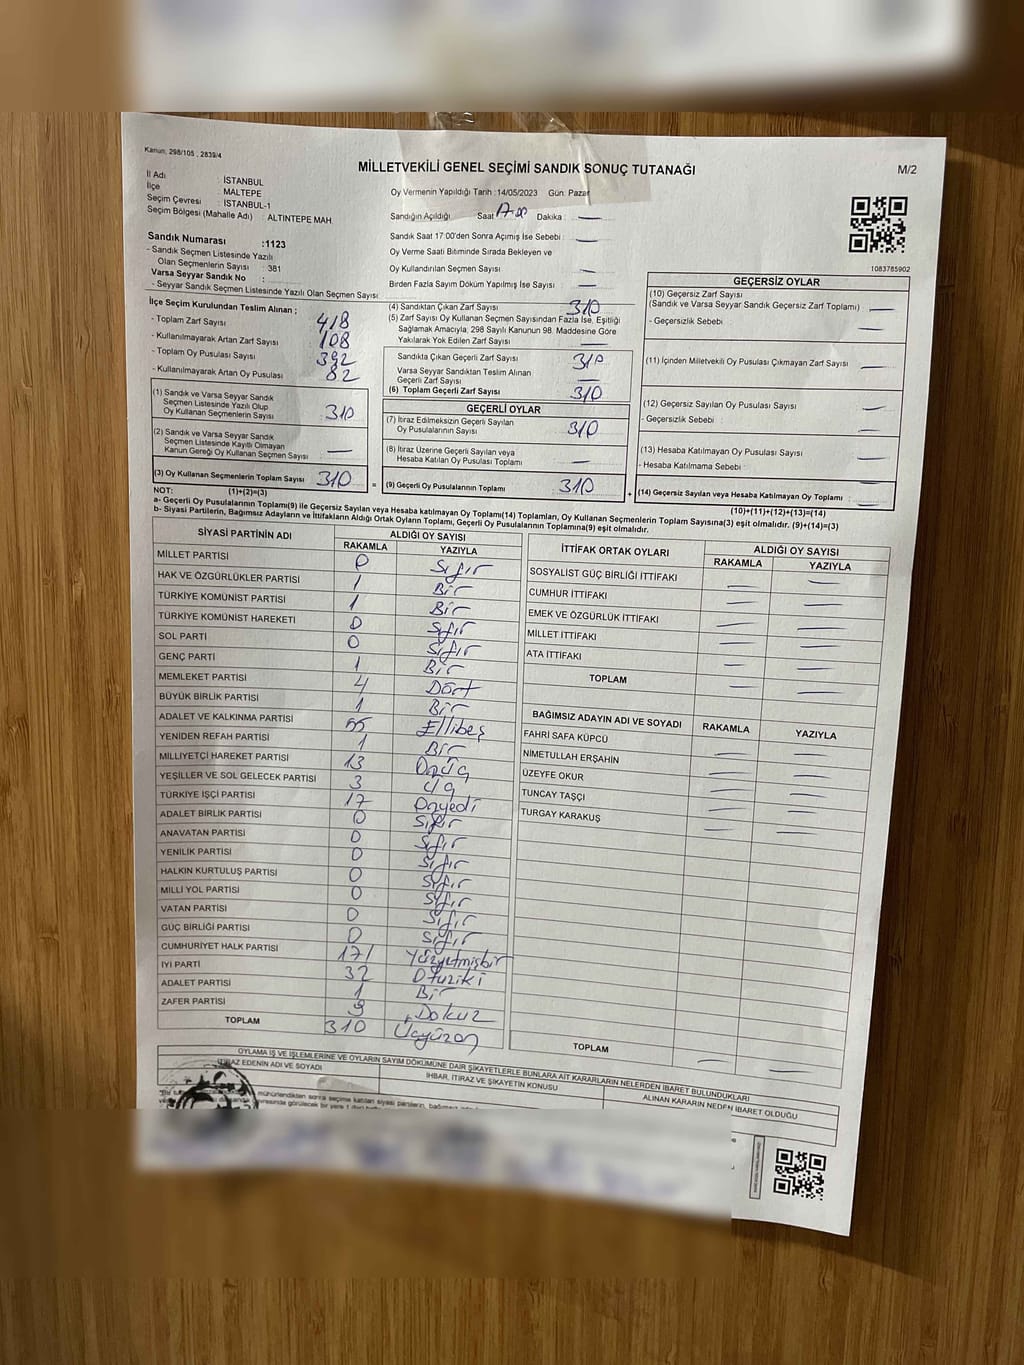 Kanun, 298/105 , 2839/4
MİLLETVEKİLİ GENEL SEÇİMİ SANDIK SONUÇ TUTANAĞI
M/2
İl Adı : İSTANBUL
İlçe : MALTEPE
Seçim Çevresi : İSTANBUL-1
Seçim Bölgesi (Mahalle Adı) : ALTINTEPE MAH.
Oy Vermenin Yapıldığı Tarih :14/05/2023 Gün: Pazar
Sandığın Açıldığı Saat Dakika : —
Sandık Saat 17:00'den Sonra Açımış İse Sebebi : —
Oy Verme Saati Bitiminde Sırada Bekleyen ve
Oy Kullandırılan Seçmen Sayısı : —
Birden Fazla Sayım Döküm Yapılmış İse Sayısı : —
1083785902
Sandık Numarası :1123
- Sandık Seçmen Listesinde Yazılı
Olan Seçmenlerin Sayısı : 381
Varsa Seyyar Sandık No :
- Seyyar Sandık Seçmen Listesinde Yazılı Olan Seçmen Sayısı :
İlçe Seçim Kurulundan Teslim Alınan ;
- Toplam Zarf Sayısı : 418
- Kullanılmayarak Artan Zarf Sayısı : 108
- Toplam Oy Pusulası Sayısı : 392
- Kullanılmayarak Artan Oy Pusulası : 82
(1) Sandık ve Varsa Seyyar Sandık
Seçmen Listesinde Yazılı Olup
Oy Kullanan Seçmenlerin Sayısı : 310
(2) Sandık ve Varsa Seyyar Sandık
Seçmen Listesinde Kayıtlı Olmayan
Kanun Gereği Oy Kullanan Seçmen Sayısı : —
(3) Oy Kullanan Seçmenlerin Toplam Sayısı : 310
(1)+(2)=(3)
(4) Sandıktan Çıkan Zarf Sayısı : 310
(5) Zarf Sayısı Oy Kullanan Seçmen Sayısından Fazla İse, Eşitliği
Sağlamak Amacıyla, 298 Sayılı Kanunun 98. Maddesine Göre
Yakılarak Yok Edilen Zarf Sayısı : —
Sandıkta Çıkan Geçerli Zarf Sayısı : 310
Varsa Seyyar Sandıktan Teslim Alınan
Geçerli Zarf Sayısı : —
(6) Toplam Geçerli Zarf Sayısı : 310
GEÇERLİ OYLAR
(7) İtiraz Edilmeksizin Geçerli Sayılan
Oy Pusulalarının Sayısı : 310
(8) İtiraz Üzerine Geçerli Sayılan veya
Hesaba Katılan Oy Pusulası Toplamı : —
= (9) Geçerli Oy Pusulalarının Toplamı : 310
GEÇERSİZ OYLAR
(10) Geçersiz Zarf Sayısı
(Sandık ve Varsa Seyyar Sandık Geçersiz Zarf Toplamı) : —
- Geçersizlik Sebebi : —
(11) İçinden Milletvekili Oy Pusulası Çıkmayan Zarf Sayısı : —
(12) Geçersiz Sayılan Oy Pusulası Sayısı : —
- Geçersizlik Sebebi : —
(13) Hesaba Katılmayan Oy Pusulası Sayısı : —
- Hesaba Katılmama Sebebi : —
+ (14) Geçersiz Sayılan veya Hesaba Katılmayan Oy Toplamı : —
(10)+(11)+(12)+(13)=(14)
NOT:
a- Geçerli Oy Pusulalarının Toplamı(9) ile Geçersiz Sayılan veya Hesaba katılmayan Oy Toplamı(14) Toplamları, Oy Kullanan Seçmenlerin Toplam Sayısına(3) eşit olmalıdır. (9)+(14)=(3)
b- Siyasi Partilerin, Bağımsız Adayların ve İttifakların Aldığı Ortak Oyların Toplamı, Geçerli Oy Pusulalarının Toplamına(9) eşit olmalıdır.
SİYASİ PARTİNİN ADI ALDIĞI OY SAYISI
RAKAMLA YAZIYLA
MİLLET PARTİSİ 0 Sıfır
HAK VE ÖZGÜRLÜKLER PARTİSİ 1 Bir
TÜRKİYE KOMÜNİST PARTİSİ 1 Bir
TÜRKİYE KOMÜNİST HAREKETİ 0 Sıfır
SOL PARTİ 0 Sıfır
GENÇ PARTİ 1 Bir
MEMLEKET PARTİSİ 4 Dört
BÜYÜK BİRLİK PARTİSİ 1 Bir
ADALET VE KALKINMA PARTİSİ 55 Ellibeş
YENİDEN REFAH PARTİSİ 1 Bir
MİLLİYETÇİ HAREKET PARTİSİ 13 Onüç
YEŞİLLER VE SOL GELECEK PARTİSİ 3 Üç
TÜRKİYE İŞÇİ PARTİSİ 17 Onyedi
ADALET BİRLİK PARTİSİ 0 Sıfır
ANAVATAN PARTİSİ 0 Sıfır
YENİLİK PARTİSİ 0 Sıfır
HALKIN KURTULUŞ PARTİSİ 0 Sıfır
MİLLİ YOL PARTİSİ 0 Sıfır
VATAN PARTİSİ 0 Sıfır
GÜÇ BİRLİĞİ PARTİSİ 0 Sıfır
CUMHURİYET HALK PARTİSİ 171 Yüzyetmişbir
İYİ PARTİ 32 Otuziki
ADALET PARTİSİ 1 Bir
ZAFER PARTİSİ 9 Dokuz
TOPLAM 310 Üçyüzon
İTTİFAK ORTAK OYLARI ALDIĞI OY SAYISI
RAKAMLA YAZIYLA
SOSYALİST GÜÇ BİRLİĞİ İTTİFAKI — —
CUMHUR İTTİFAKI — —
EMEK VE ÖZGÜRLÜK İTTİFAKI — —
MİLLET İTTİFAKI — —
ATA İTTİFAKI — —
TOPLAM — —
BAĞIMSIZ ADAYIN ADI VE SOYADI RAKAMLA YAZIYLA
FAHRİ SAFA KÜPCÜ — —
NİMETULLAH ERŞAHİN — —
ÜZEYFE OKUR — —
TUNCAY TAŞÇI — —
TURGAY KARAKUŞ — —
TOPLAM — —
OYLAMA İŞ VE İŞLEMLERİNE VE OYLARIN SAYIM DÖKÜMÜNE DAİR ŞİKAYETLERLE BUNLARA AİT KARARLARIN NELERDEN İBARET BULUNDUKLARI
İTİRAZ EDENİN ADI VE SOYADI
İHBAR, İTİRAZ VE ŞİKAYETİN KONUSU
ALINAN KARARIN NEDEN İBARET OLDUĞU